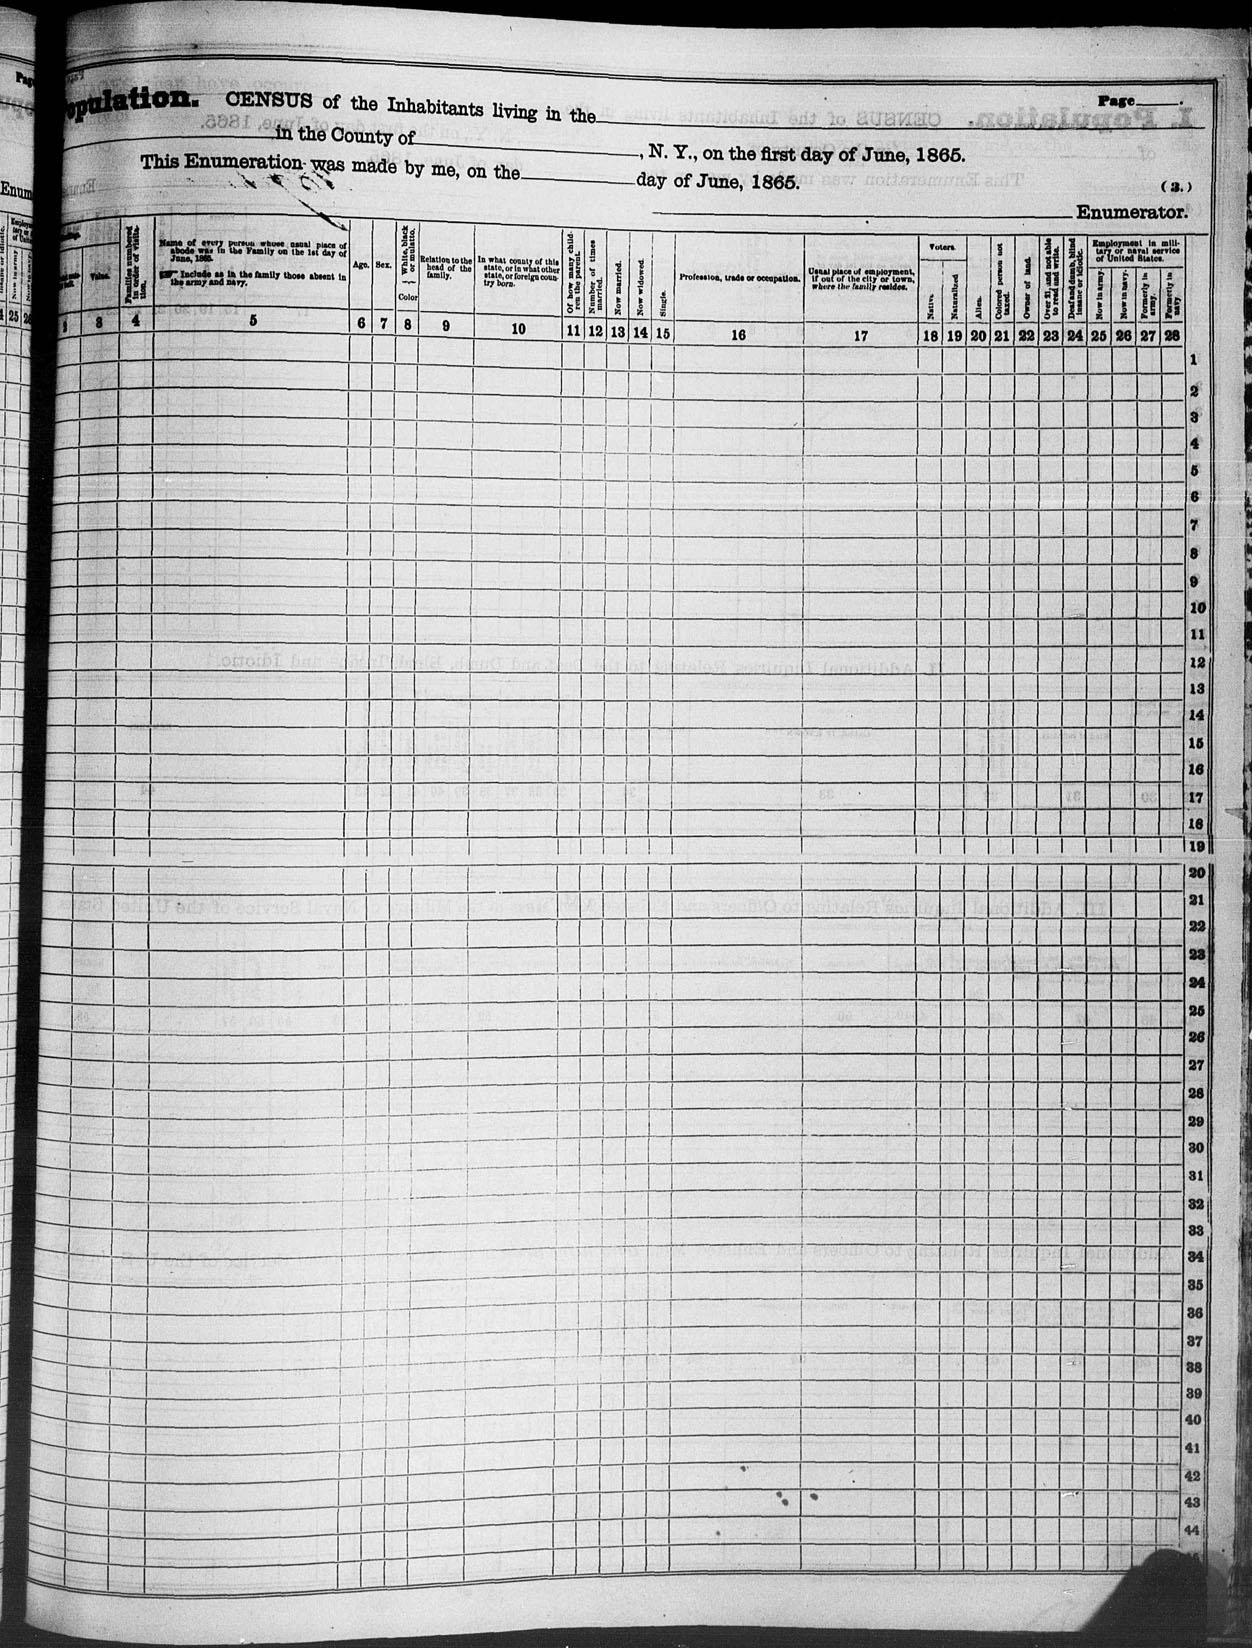 Page____.
opulation. CENSUS of the Inhabitants living in the
in the County of ____, N. Y., on the first day of June, 1865.
This Enumeration was made by me, on the ____ day of June, 1865.
(3.)
Enumerator.
Value.
Families numbered in order of visitation.
Name of every person whose usual place of abode was in the Family on the 1st day of June, 1865.
☞ Include as in the family those absent in the army and navy.
Age.
Sex.
White, black or mulatto.
Color
Relation to the head of the family.
In what county of this state, or in what other state, or foreign country born.
Of how many children the parent.
Number of times married.
Now married.
Now widowed.
Single.
Profession, trade or occupation.
Usual place of employment, if out of the city or town, where the family resides.
Voters.
Native.
Naturalized
Alien.
Colored person not taxed.
Owner of land.
Over 21 and not able to read and write.
Deaf and dumb, blind insane or idiotic.
Employment in military or naval service of United States.
Now in army.
Now in navy.
Formerly in army.
Formerly in navy
3 4 5 6 7 8 9 10 11 12 13 14 15 16 17 18 19 20 21 22 23 24 25 26 27 28
1
2
3
4
5
6
7
8
9
10
11
12
13
14
15
16
17
18
19
20
21
22
23
24
25
26
27
28
29
30
31
32
33
34
35
36
37
38
39
40
41
42
43
44